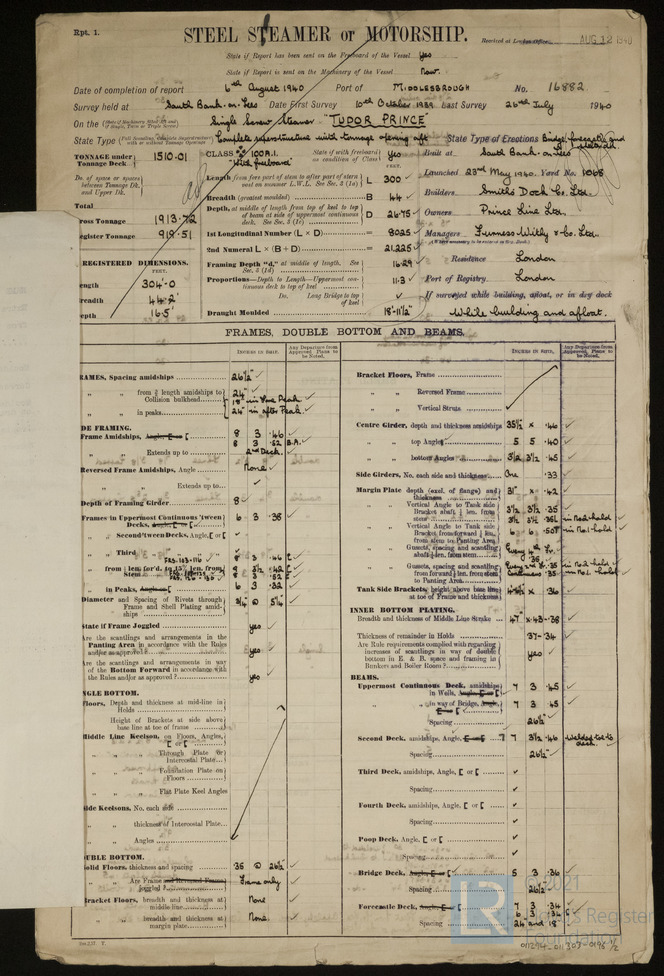 Rpt. 1.
STEEL STEAMER or MOTORSHIP.
Received at London Office AUG 12 1940
State if Report has been sent on the Freeboard of the Vessel Yes
State if Report is sent on the Machinery of the Vessel Now.
Date of completion of report 6th August 1940 Port of MIDDLESBROUGH No. 16882
Survey held at South Bank-on-Tees Date First Survey 10th October 1939 Last Survey 26th July 1940
On the Single Screw Steamer "TUDOR PRINCE"
State Type Complete superstructure with tonnage opening aft State Type of Erections Bridge, forecastle and
TONNAGE under Tonnage Deck 1510.01
CLASS 100A.1. "With freeboard" State if with freeboard as condition of Class Yes
Built at South Bank-on-Tees
Launched 23rd May 1940. Yard No. 1068
Builders Smiths Dock Co. Ltd.
Owners Prince Line Ltd.
Managers Furness Withy & Co. Ltd.
Residence London
Port of Registry London
If surveyed while building, afloat, or in dry dock
While building and afloat.
Do. of space or spaces between Tonnage Dk. and Upper Dk.
Total
ross Tonnage 1913.72
egister Tonnage 919.51
REGISTERED DIMENSIONS.
FEET.
ength 304'.0
readth 44.2'
epth 16.5'
Length from fore part of stem to after part of stern post on summer L.W.L. See Sec. 3 (1a) L 300
Breadth (greatest moulded) B 44
Depth, at middle of length from top of keel to top of beam at side of uppermost continuous deck. See Sec. 3 (1c) D 26.75
1st Longitudinal Number (L × D) = 8025
2nd Numeral L × (B + D) = 21,225
Framing Depth "d," at middle of length. See Sec. 3 (1d) 16.29
Proportions—Depth to Length—Uppermost continuous deck to top of keel 11.3
Do. Long Bridge to top of keel
Draught Moulded 18'-11½"
FRAMES, DOUBLE BOTTOM AND BEAMS.
INCHES IN SHIP. Any Departure from Approved Plans to be Noted.
RAMES, Spacing amidships 26½"
" " from ⅗ length amidships to Collision bulkhead 24"
" " in peaks 24" in after Peak
DE FRAMING.
Frame Amidships, 8 3 .46
8 3 .52 B.A.
" " Extends up to 2nd Deck.
Reversed Frame Amidships, Angle None
" " Extends up to
Depth of Framing Girder 8
Frames in Uppermost Continuous 'tween Decks, 6 3 .38
" Second 'tween Decks, Angle, [ or [
" Third " "
" in Peaks, 6 3 .32
Diameter and Spacing of Rivets through Frame and Shell Plating amidships ¾" @ 5¼"
State if Frame Joggled yes
Are the scantlings and arrangements in the Panting Area in accordance with the Rules and/or as approved? yes
Are the scantlings and arrangements in way of the Bottom Forward in accordance with the Rules and/or as approved? yes
NGLE BOTTOM.
Floors, Depth and thickness at mid-line in Holds
Height of Brackets at side above base line at toe of frame
Middle Line Keelson, on Floors, Angles, [ or [
" " Through Plate or Intercostal Plate
" " Foundation Plate on Floors
" " Flat Plate Keel Angles
ide Keelsons, No. each side
" " thickness of Intercostal Plate
" " Angles
OUBLE BOTTOM.
Solid Floors, thickness and spacing .36 @ 26½"
" " Are Frame and Reversed Frame joggled? Frame only
Bracket Floors, breadth and thickness at middle line None
" " breadth and thickness at margin plate None
Bracket Floors, Frame
" " Reversed Frame
" " Vertical Struts
Centre Girder, depth and thickness amidships 35½ × .46
" " top Angles 5 5 .40
" " bottom Angles 3½ 3½ .45
Side Girders, No. each side and thickness One .33
Margin Plate depth (excl. of flange) and thickness 31" × .42
" " Vertical Angle to Tank side Bracket abaft ¼ len. from stem 3½ 3½ .35
" " Vertical Angle to Tank side Bracket from forward ¼ len. from stem to Panting Area
" " Gussets, spacing and scantling abaft ¼ len. from stem
" " Gussets, spacing and scantling from forward ¼ len. from stem to Panting Area
Tank Side Brackets, height above base line at toe of Frame and thickness × .36
INNER BOTTOM PLATING.
Breadth and thickness of Middle Line Strake 47" × .43-.38
Thickness of remainder in Holds .37-.34
Are Rule requirements complied with regarding increases of scantlings in way of double bottom in E. & B. space and framing in Bunkers and Boiler Room? yes
BEAMS.
Uppermost Continuous Deck, amidships in Wells, 7 3 .45
" " in way of Bridge, 7 3 .45
Spacing 26½"
Second Deck, amidships, Angle, 7 3½ .46 welded toe to deck.
Spacing 26½"
Third Deck, amidships, Angle, [ or [
Spacing
Fourth Deck, amidships, Angle, [ or [
Spacing
Poop Deck, Angle, [ or [
Spacing
Bridge Deck, 5 3 .36
Spacing 26½
Forecastle Deck, 7 3 .34
6 3 .34
Spacing 24 and 18
© 2021
Lloyd's Register
Foundation
011294-011303-0196 1/2